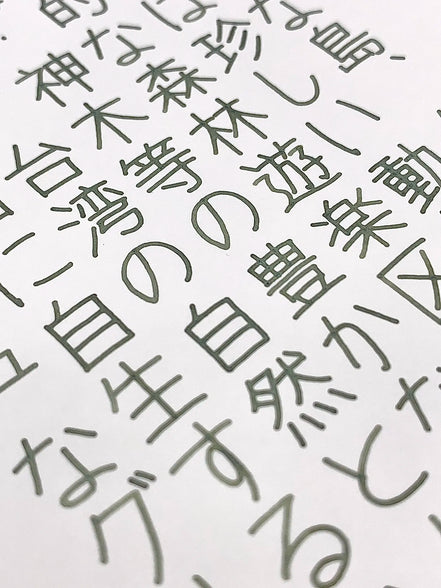 な鳥、
は珍しい動
的な森林遊楽区
神木等の豊かな
台湾の自然と
に自生する
なグ